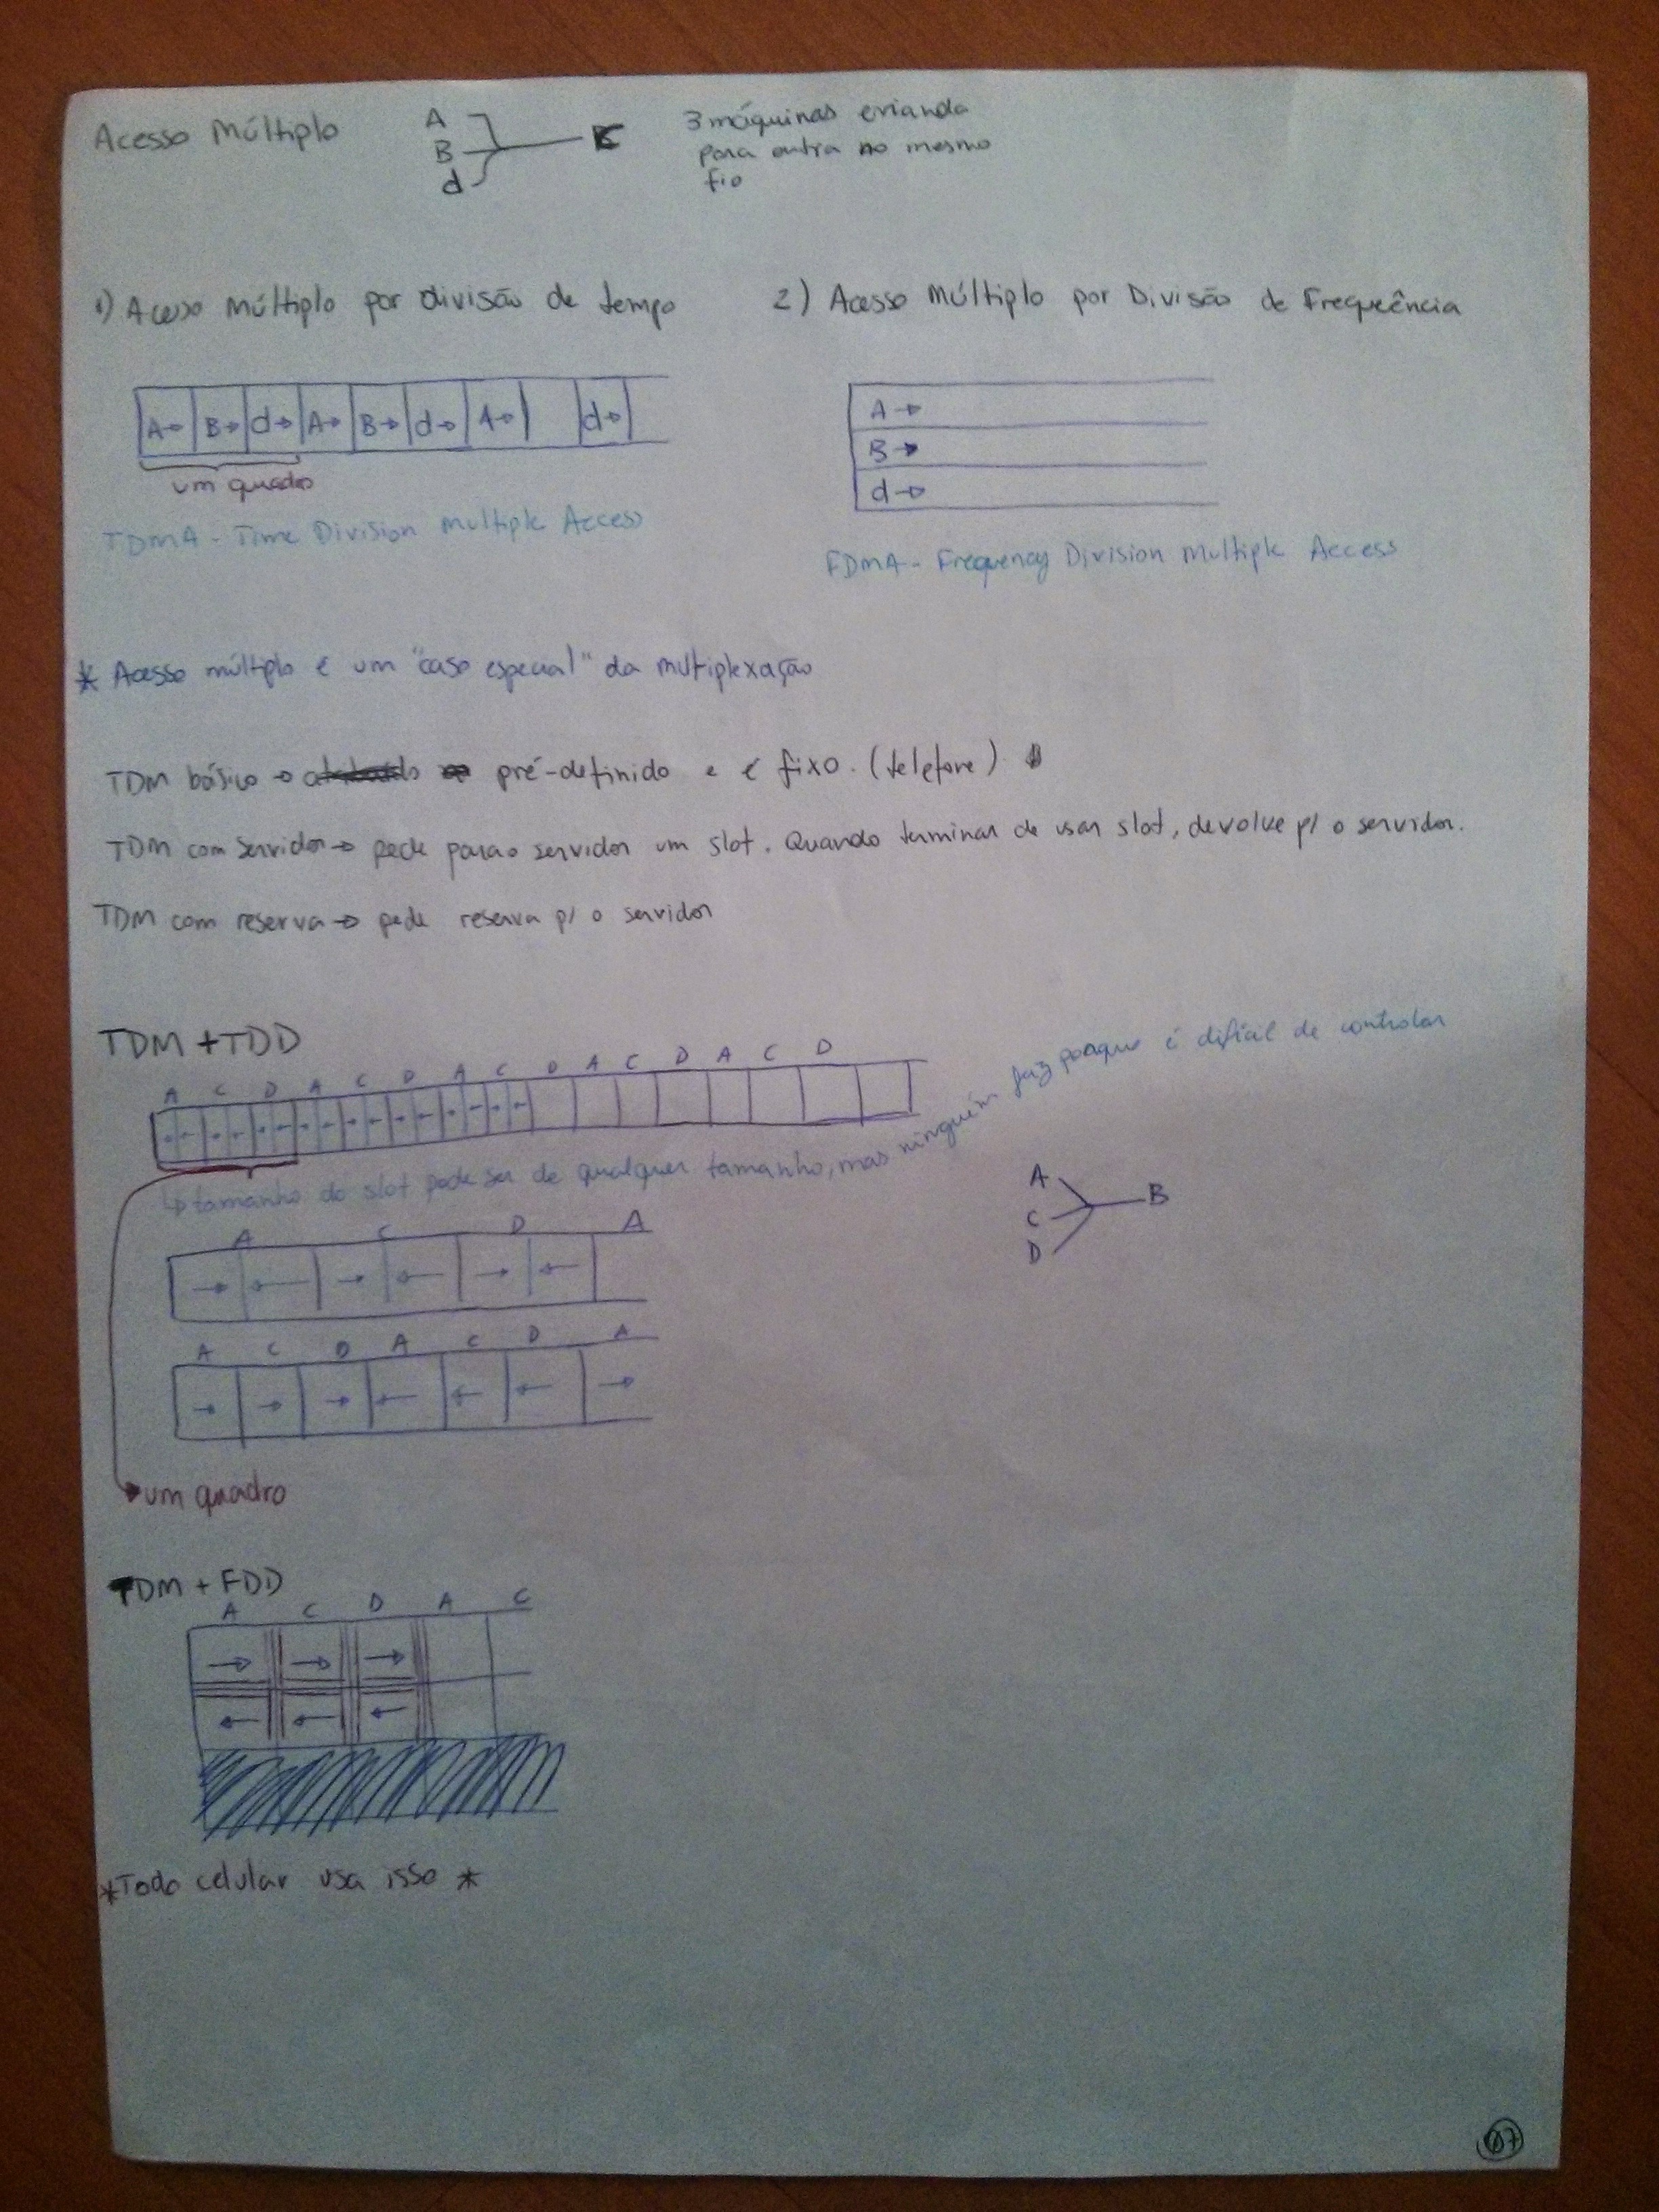 Acesso Múltiplo
A
B
d
3 máquinas eviando
para outra no mesmo
fio
1) Acesso Múltiplo por divisão de tempo
2) Acesso Múltiplo por Divisão de Frequência
A→ B→ d→ A→ B→ d→ A→ d→
um quadro
TDMA - Time Division Multiple Access
A→
B→
d→
FDMA - Frequency Division Multiple Access
* Acesso múltiplo é um "caso especial" da multiplexação
TDM básico → pré-definido e é fixo. (telefone)
TDM com servidor → pede para o servidor um slot. Quando terminar de usar slot, devolve p/ o servidor.
TDM com reserva → pede reserva p/ o servidor
TDM + TDD
A C D A C D A C D A C D A C D
↳ tamanho do slot pode ser de qualquer tamanho, mas ninguém faz porque é difícil de controlar
A
C
D
B
A C D A
→ ← → ← → ←
A C D A C D A
→ → → ← ← ← →
um quadro
TDM + FDD
A C D A C
→ → →
← ← ←
*Todo celular usa isso *
07